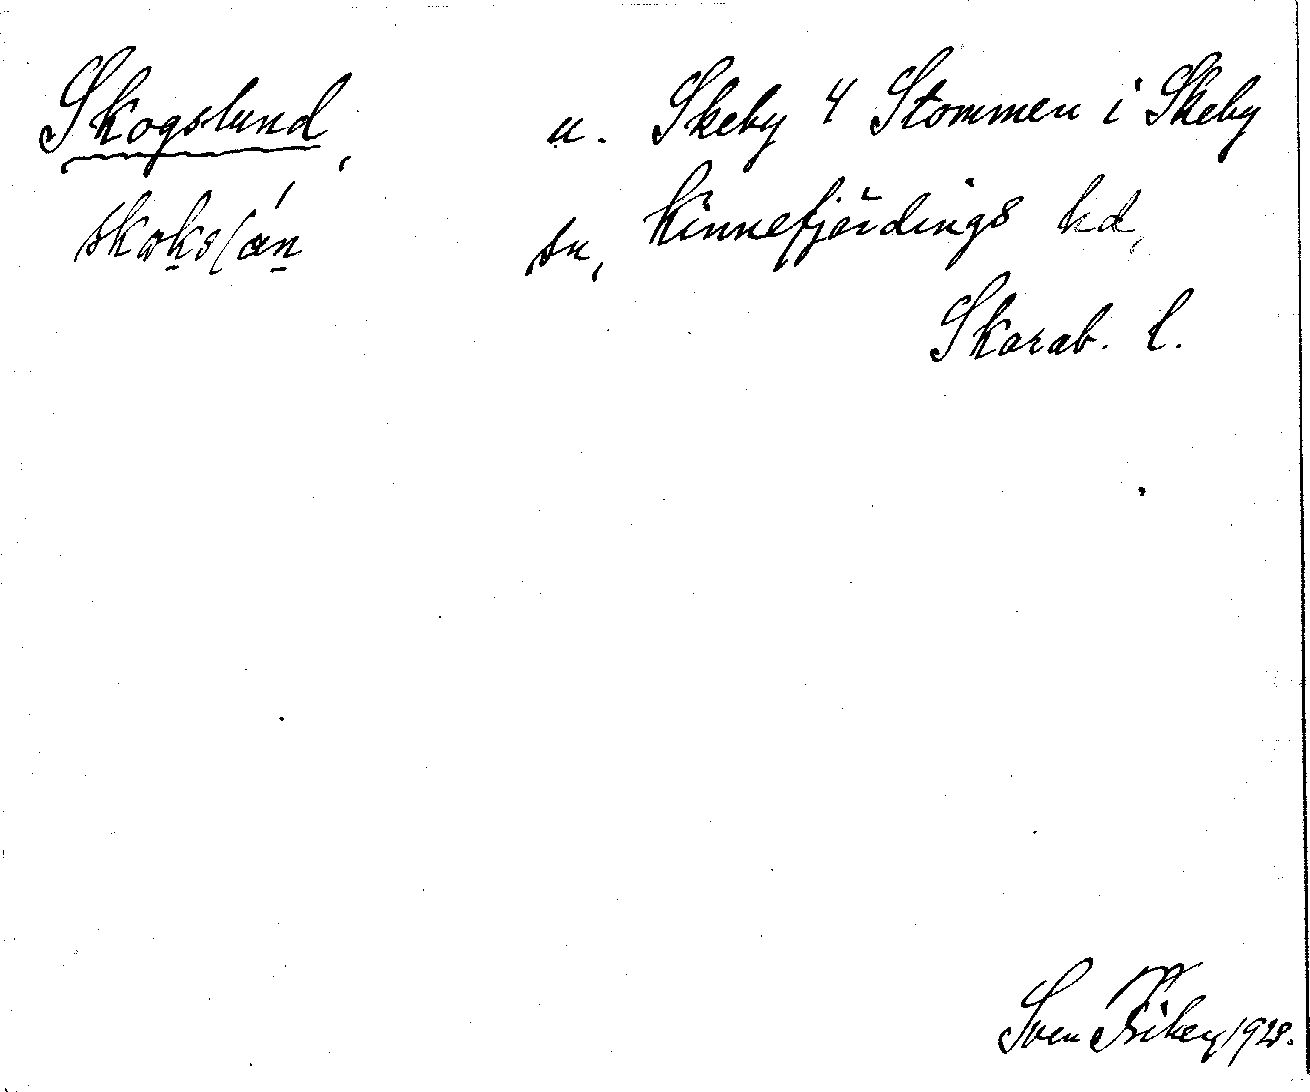 Skogslund, u. Skeby 4 Stommen i Skeby
sn, Kinnefjärdings hd,
Skarab. l.
Sven 1928.